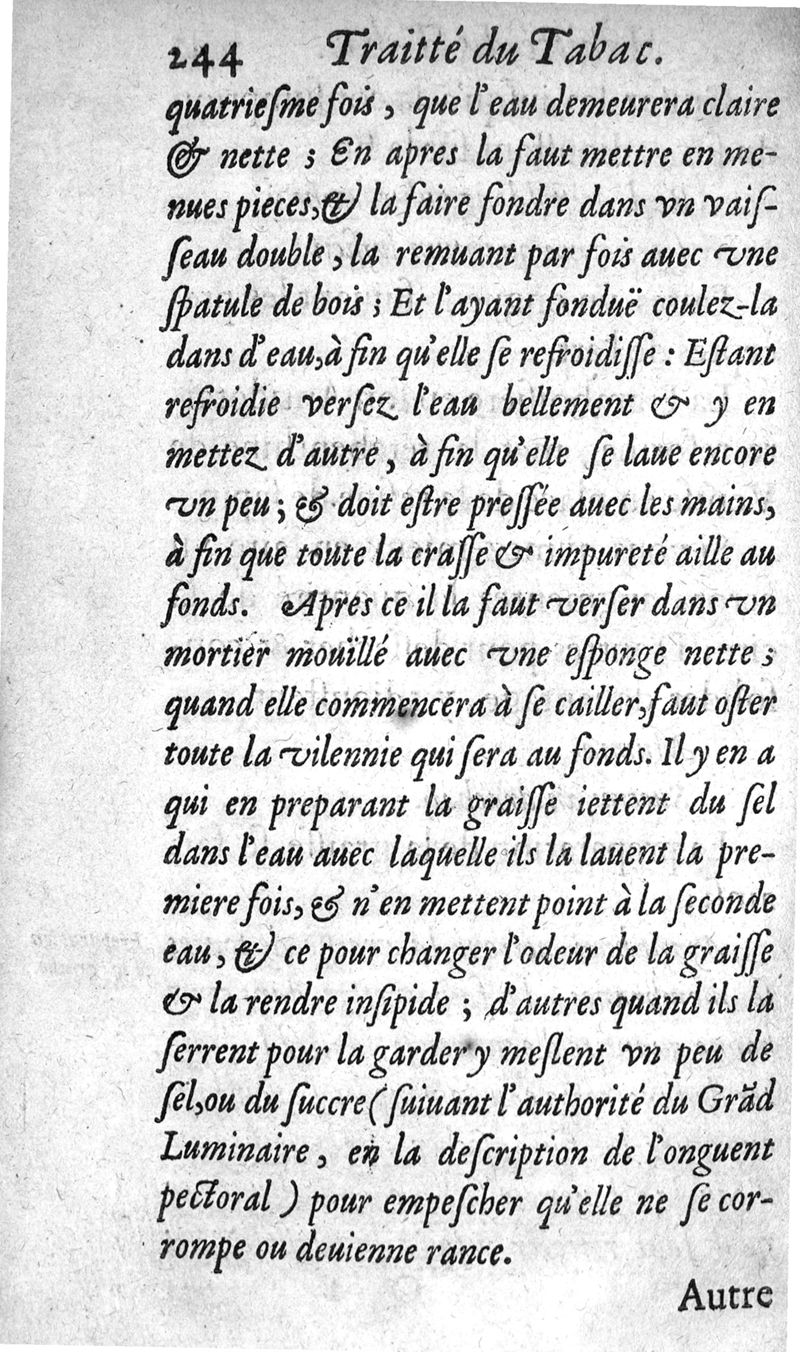 244 Traitté du Tabac.
quatrieſme fois, que l'eau demeurera claire
& nette ; En apres la faut mettre en me-
nues pieces, & la faire fondre dans vn vaiſ-
ſeau double, la remuant par fois auec vne
ſpatule de bois ; Et l'ayant fonduë coulez-la
dans d'eau, à fin qu'elle ſe refroidiſſe : Eſtant
refroidie verſez l'eau bellement & y en
mettez d'autre, à fin qu'elle ſe laue encore
vn peu ; & doit eſtre preſſée auec les mains,
à fin que toute la craſſe & impureté aille au
fonds. Apres ce il la faut verſer dans vn
mortier mouïllé auec vne eſponge nette ;
quand elle commencera à ſe cailler, faut oſter
toute la vilennie qui ſera au fonds. Il y en a
qui en preparant la graiſſe iettent du ſel
dans l'eau auec laquelle ils la lauent la pre-
miere fois, & n'en mettent point à la ſeconde
eau, & ce pour changer l'odeur de la graiſſe
& la rendre inſipide ; d'autres quand ils la
ſerrent pour la garder y meſlent vn peu de
ſel, ou du ſuccre (ſuiuant l'authorité du Grãd
Luminaire, en la deſcription de l'onguent
pectoral) pour empeſcher qu'elle ne ſe cor-
rompe ou deuienne rance.
Autre